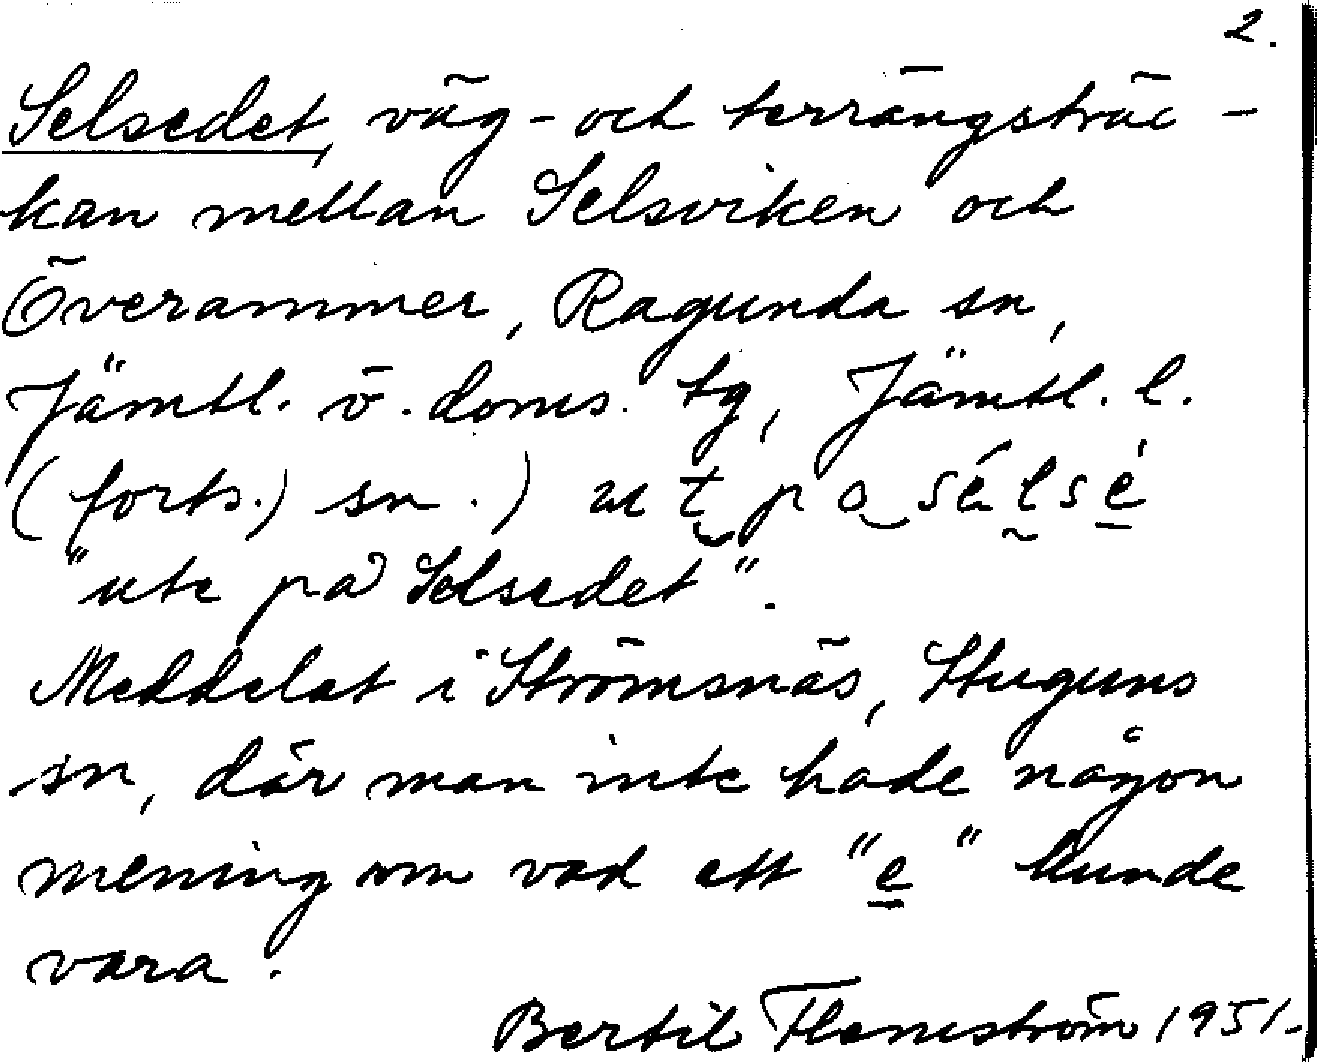 2.
Selsedet, väg- och terrängsträc-
kan mellan Selsviken och
Överammer, Ragunda sn,
Jämtl. ö. doms. tg, Jämtl. l.
(forts.) sn.) ut pa sélsé
"ute på Selsedet".
Meddelat i Strömsnäs, Stuguns
sn, där man inte hade någon
mening om vad ett "e" kunde
vara.
Bertil Flemström 1951.